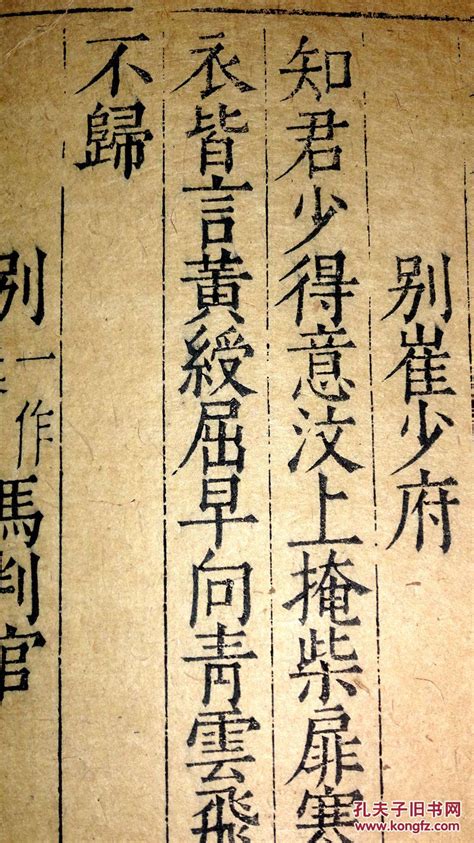 别崔少府
知君少得意汶上掩柴扉寒
衣皆言黄綬屈早向青雲飛
不歸
别一作馬判官
孔夫子旧书网
kongfz.com